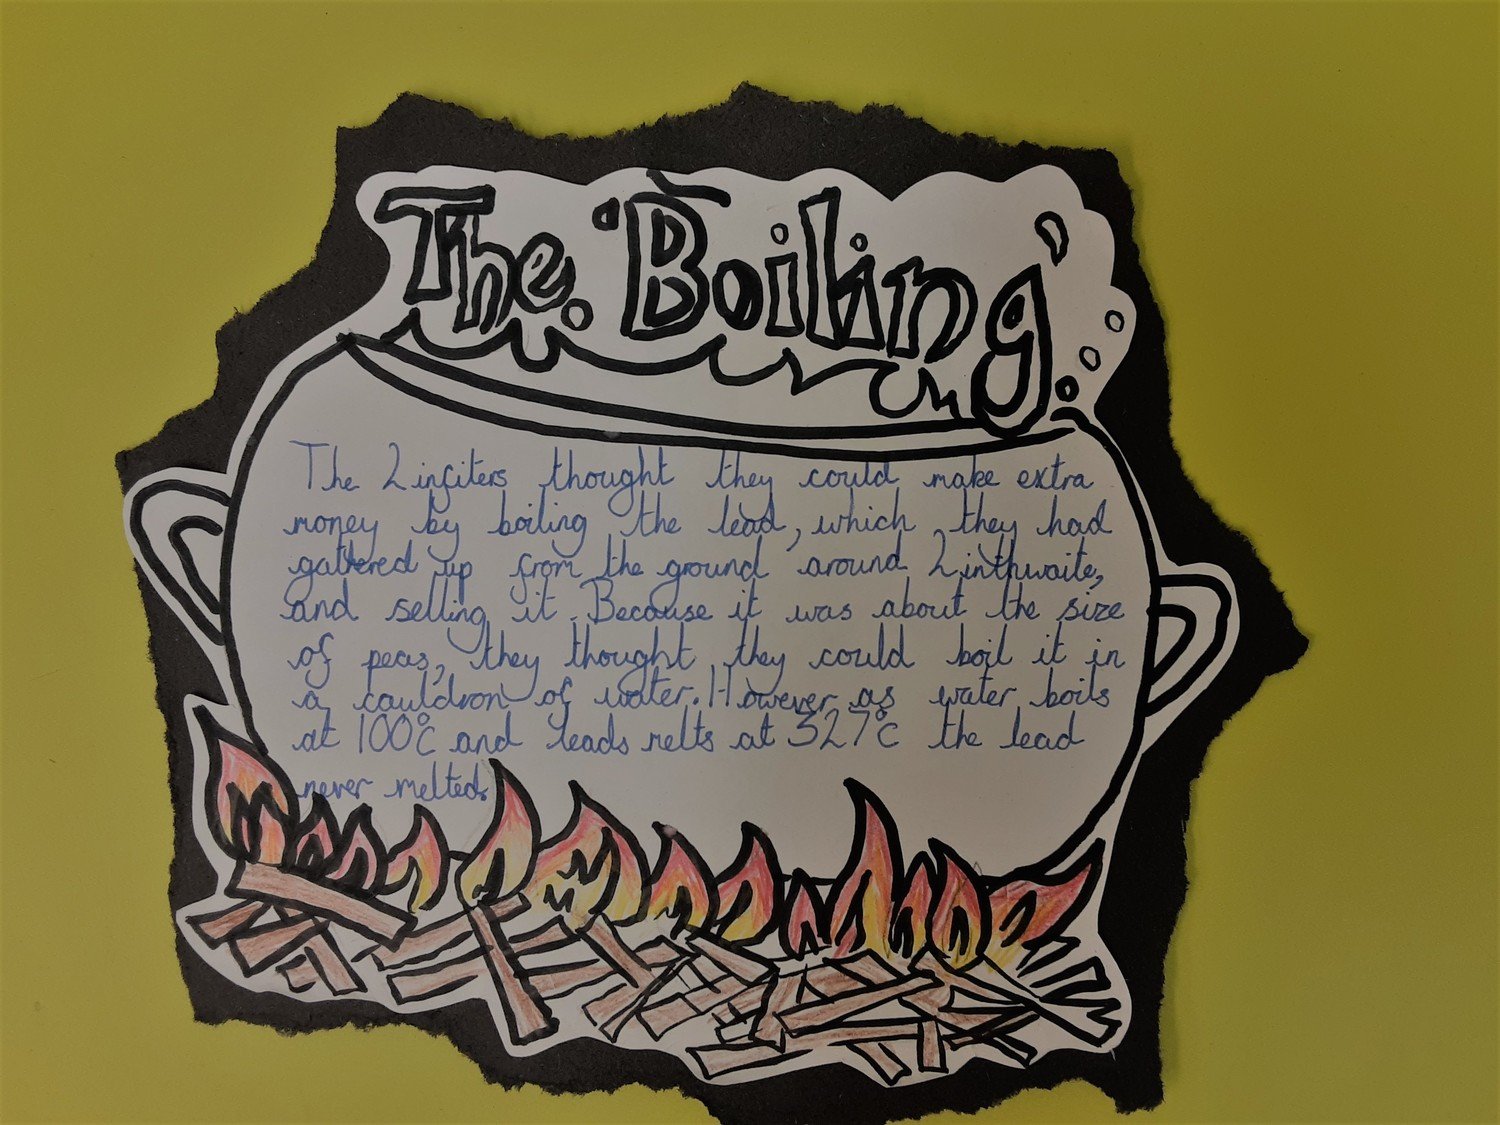 The 'Boiling'
The Linfiters thought they could make extra
money by boiling the lead, which they had
gathered up from the ground around Linthwaite,
and selling it. Because it was about the size
of peas, they thought they could boil it in
a cauldron of water. However as water boils
at 100°c and leads melts at 327°c the lead
never melted.